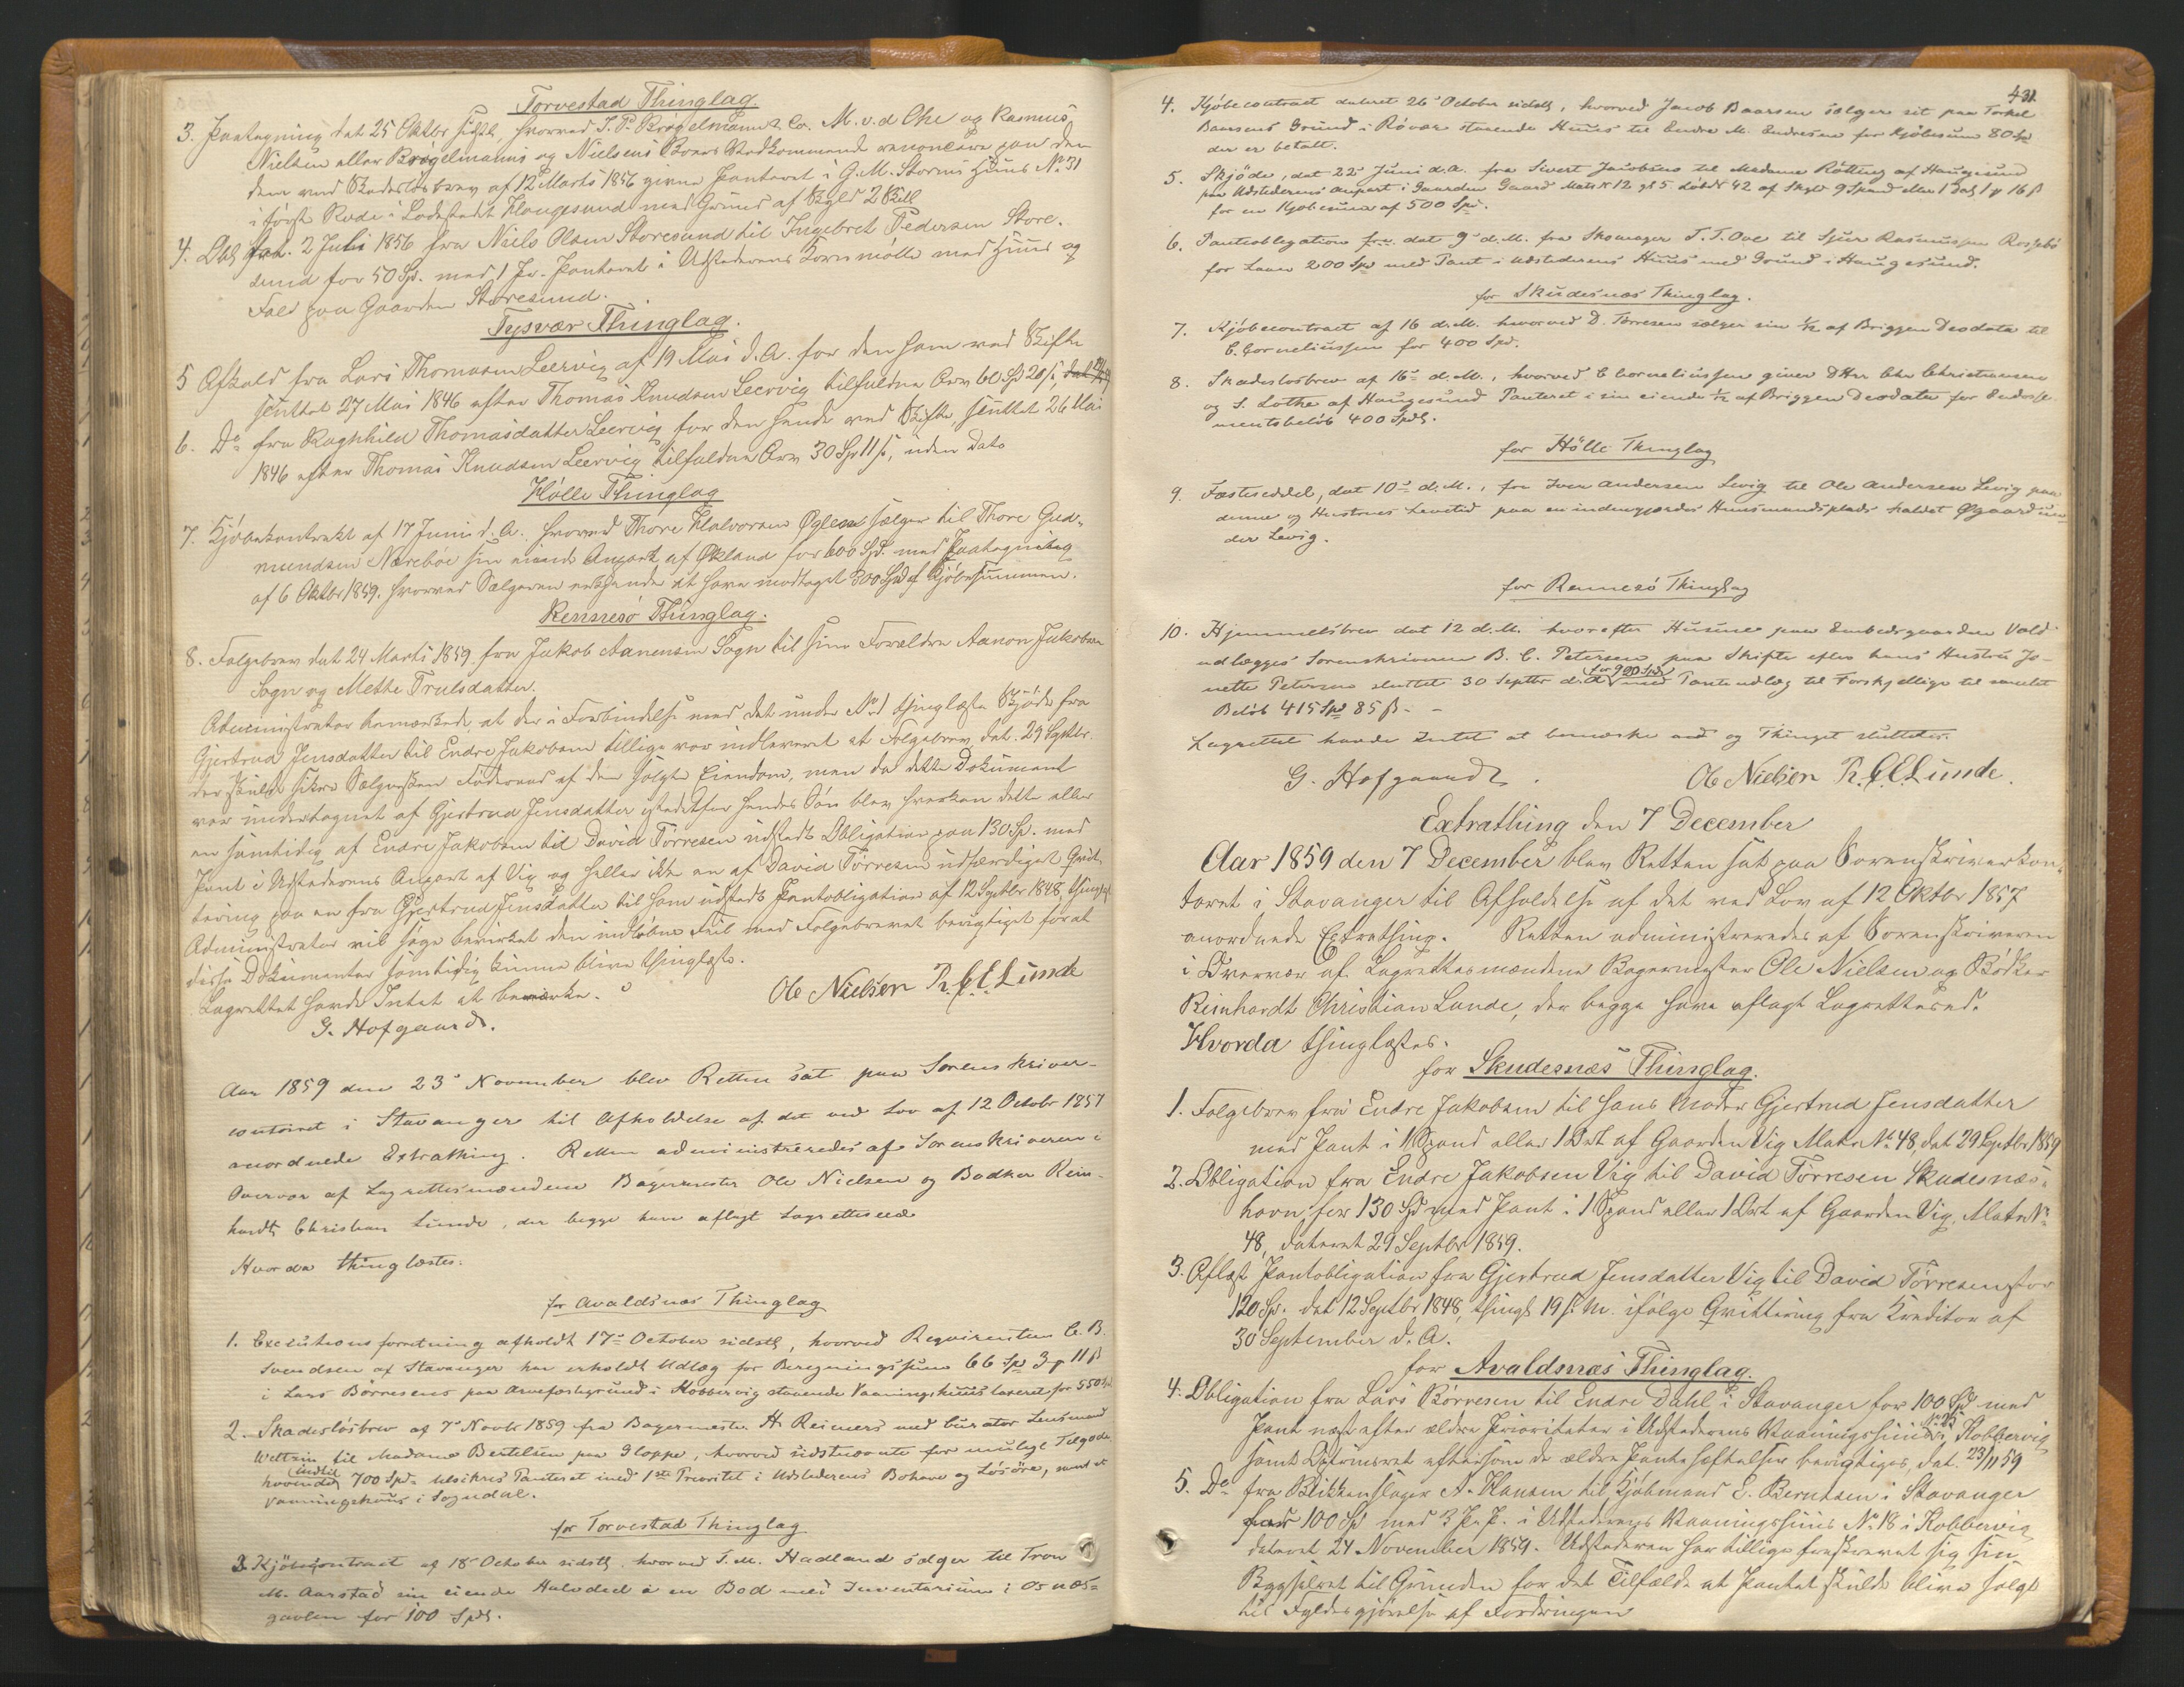 Torvestad Thinglag.
3. Paategning dat 25 Oktbr sidstl, hvorved J. P. Brögelmann & Co. M. v. d. Ohe og Rasmus
Nielsen eller Brögelmanns og Nielsens Boers Vedkommende renoncere paa den
dem ved Skadeslosbrev af 12 Marts 1856 givne Panteret i G. M. Storms Huus No 31
i förste Rode i Ladestedet Haugesund med Grund af Skyld 2 Skill
4. Obl dat. 2 Juli 1856 fra Niels Olsen Storesund til Ingebret Pedersen Store-
sund for 50 Spd. med 1 Pr. Panteret i Udstederens Kornmölle med Huus og
Fald paa Gaarden Storesund.
Tysvær Thinglag.
5 Afkald fra Lars Thomasen Leervig af 19 Mai d. A. for den ham ved Skifte
sluttet 27 Mai 1846 efter Thomas Knudsen Leervig tilfaldne Arv 60 Spd 20 ß,
6. Do fra Ragnhild Thomasdatter Leervig for den hende ved Skifte sluttet 26 Mai
1846 efter Thomas Knudsen Leervig tilfaldne Arv 30 Spd 11 ß, uden Dato
Hölle Thinglag
7. Kjöbekontrakt af 17 Juni d. A. hvorved Thore Halvorsen Öglend sælger til Thore Gud-
mundsen Nærebøe sin eiende Anpart af Okland for 600 Spd. med Paategning
af 6 Oktbr 1859, hvorved Sælgeren erkjender at have modtaget 300 Spd af Kjöbesummen.
Rennesö Thinglag.
8. Folgebrev dat 24 Marts 1859 fra Jakob Aanensen Sogn til sine Forældre Aanon Jakobsen
Sogn og Mette Trulsdatter.
Administrator bemærkede at der i Forbindelse med det under No 1 thinglæste Skjöde fra
Gjertrud Jensdatter til Endre Jakobsen tillige var indleveret et Folgebrev, dat. 29 Septbr.
der skulde sikre Sælgersken Föderaad af den solgte Eiendom, men da dette Dokument
var undertegnet af Gjertrud Jensdatter istedetfor hendes Sön blev hverken dette eller
en samtidig af Endre Jakobsen til David Törresen udstedt Obligation paa 130 Sp. med
Pant i Udstederens Anpart af Vig og heller ikke en af David Törresen udfærdiget Qvit-
tering paa en fra Gjertrud Jensdatter til ham udstedt Pantobligation af 12 Septbr 1848, thinglæst.
Administrator vil söge bevirket den indløbne Feil med Folgebrevet berigtiget forat
disse Dokumenter samtidig kunne blive thinglæste.
Lagrettet havde Intet at bemærke.
G. Hofgaard. Ole Nielsen R. C. E. Lunde
Aar 1859 den 23de November blev Retten sat paa Sorenskriver-
contoiret i Stavanger til Afholdelse af det ved Lov af 12 Octobr 1857
anordnede Extrathing. Retten administreredes af Sorenskriveren i
Overvær af Lagrettesmændene Bagermester Ole Nielsen og Bødker Rein-
hardt Christian Lunde, der begge have aflagt Lagretteseed
Hvorda thinglæstes:
for Avaldsnæs Thinglag
1. Executionsforretning afholdt 17de October sidstl, hvorved Reqvirenten C. B.
Svendsen af Stavanger har erholdt Udlæg for Beregningssum 66 Spd 3 # 11 ß
i Lars Börresens paa Arvefæstegrund i Kobbervig staaende Vaaningshuus taxeret for 550 Spd
2. Skadeslösbrev af 7de Novbr 1859 fra Bagermester H. Reimers med Curator Lensmand
Wettrin til Madame Bertelsen paa Gloppe, hvorved sidstnævnte for mulige Tilgode-
havender indtil 700 Spd udsikres Panteret med 1ste Prioritet i Udstederens Bohave og Lösöre, samt et
Vaaningshuus i Sogndal.
for Torvestad Thinglag
3. Kjöbecontract af 18 October sidstl, hvorved T. M. Hadland sælger til Tron
M. Aarstad sin eiende Halvdeel i en Bod med Inventarium i Osnæs-
gavlen for 100 Spdl.
431.
4. Kjöbecontract dateret 26de October sidstl, hvorved Jacob Baarsen sælger sit paa Torkel
Baarsens Grund i Rövær staaende Huus til Endre M. Endresen for Kjöbesum 80 Spd
der er betalt.
5. Skjöde, dat 22de Juni d. A. fra Sivert Jacobsen til Madame Rötting af Haugesund
paa Udstederens Anpart i Gaarden Gaard Matr No 12 gl 5 Löb No 42 af Skyld 9 Spand Men 1 Dal 1 # 16 ß
for en Kjøbesum af 500 Spd.
6. Panteobligation dat 9de d. M. fra Skomager T. T. Ove til Sjur Rasmussen Rossebö
for Laan 200 Spd med Pant i Udstederens Huus med Grund i Haugesund.
for Skudesnæs Thinglag.
7. Kjöbecontract af 16 d. M. hvorved D. Törresen sælger sin 1/12 af Briggen Deodata til
C. Corneliussen for 400 Spd.
8. Skadeslosbrev af 16de d. M., hvorved C Corneliussen giver DHrr Chr Christensen
og S. Lothe af Haugesund Panteret i sin eiende 1/12 af Briggen Deodata for Endosse-
mentsbelöb 400 Spdl.
for Hölle Thinglag
9. Fæsteseddel, dat 10de d. M., fra Iver Andersen Levig til Ole Andersen Levig paa
denne og Hustrues Levetid paa en indengjærdes Huusmandsplads kaldet Øgaard un-
der Levig.
for Rennesö Thinglag
10. Hjemmelsbrev dat 12 d. M. hvorefter Husene paa Embedsgaarden Vold
udlægges Sorenskriveren B. C. Petersen paa Skifte efter hans Hustru Jo-
nette Petersen sluttet 30 Septbr d. A for 900 Spd med Panteudlæg til Forskjellige til samlet
Belöb 415 Spd 85 ß. -
Lagrettet havde Intet at bemærke ved og Thinget sluttedes.
G. Hofgaard. Ole Nielsen R. C. E. Lunde.
Extrathing den 7 December
Aar 1859 den 7 December blev Retten sat paa Sorenskriverkon-
toret i Stavanger til Afholdelse af det ved Lov af 12 Oktbr 1857
anordnede Extrathing. Retten administreredes af Sorenskriveren
i Overvær af Lagrettesmændene Bagermester Ole Nielsen og Bödker
Reinhardt Christian Lunde, der begge have aflagt Lagretteseed.
Hvorda thinglæstes.
for Skudesnæs Thinglag.
1. Folgebrev fra Endre Jakobsen til hans Moder Gjertrud Jensdatter
med Pant i 1 Spand eller 1 Drt af Gaarden Vig Matr No 48, dat 29 Septbr 1859
2. Obligation fra Endre Jakobsen Vig til David Törresen Skudesnæs-
havn, for 130 Spd med Pant i 1 Spand eller 1 Drt af Gaarden Vig, Matr No
48, dateret 29 Septbr 1859.
3. Aflæst Pantobligation fra Gjertrud Jensdatter Vig til David Törresen for
120 Sp. dat 12 Septbr 1848, thingl 19 s. M. ifölge Qvittering fra Kreditor af
30 September d. A.
for Avaldsnæs Thinglag.
4. Obligation fra Lars Börresen til Endre Dahl i Stavanger for 100 Spd med
Pant næst efter ældre Prioriteter i Udstederens Vaaningshuus No 25 i Kobbervig
samt Opryknings eftersom de ældre Pantehæftelser berigtiges, dat. 23/11 59
5. Do fra Blikkenslager A. Hansen til Kjöbmand E. Berntsen i Stavanger
100 Spd med 3 Pr. P. i Udstederens Vaaningshuus No 18 i Kobbervig
dateret 24 November 1859. Udstederen har tillige fraskrevet sig sin
Bygselret til Grunden for det Tilfælde at Pantet skulde blive solgt
til Fyldestgjörelse af Fordringen